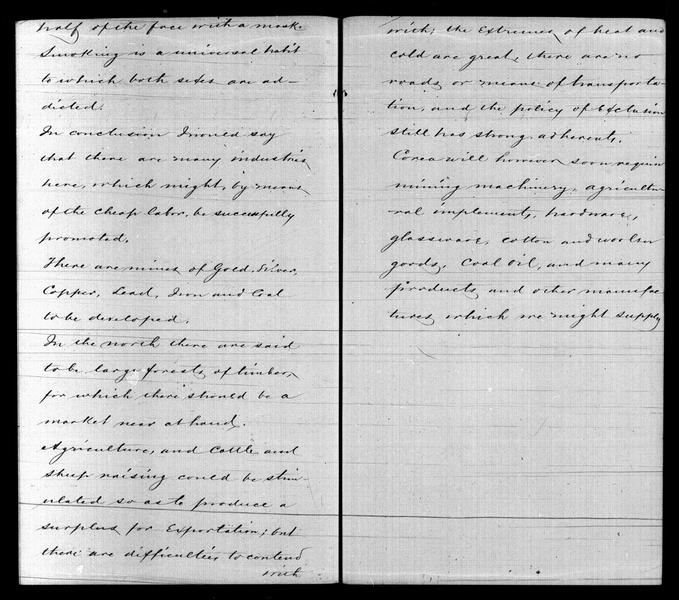 half of the face with a mask.
Smoking is a universal habit
to which both sexes are ad-
dicted.
In conclusion I need say
that there are many industries
here, which might, by means
of the cheap labor, be successfully
promoted.
There are mines of Gold, Silver,
Copper, Lead, Iron and Coal
to be developed.
In the north there are said
to be large forests of timber,
for which there should be a
market near at hand.
Agriculture, and Cattle and
Sheep raising could be stim-
ulated so as to produce a
surplus for Exportation; but
there are difficulties to contend
with
with; the Extremes of heat and
cold are great, there are no
roads or means of transporta-
tion, and the policy of Exclusion
still has strong adherents.
Corea will however soon require
mining machinery, agricultu-
ral implements, hardware,
glassware, cotton and woolen
goods, Coal oil, and many
products and other manufac-
tures which we might supply